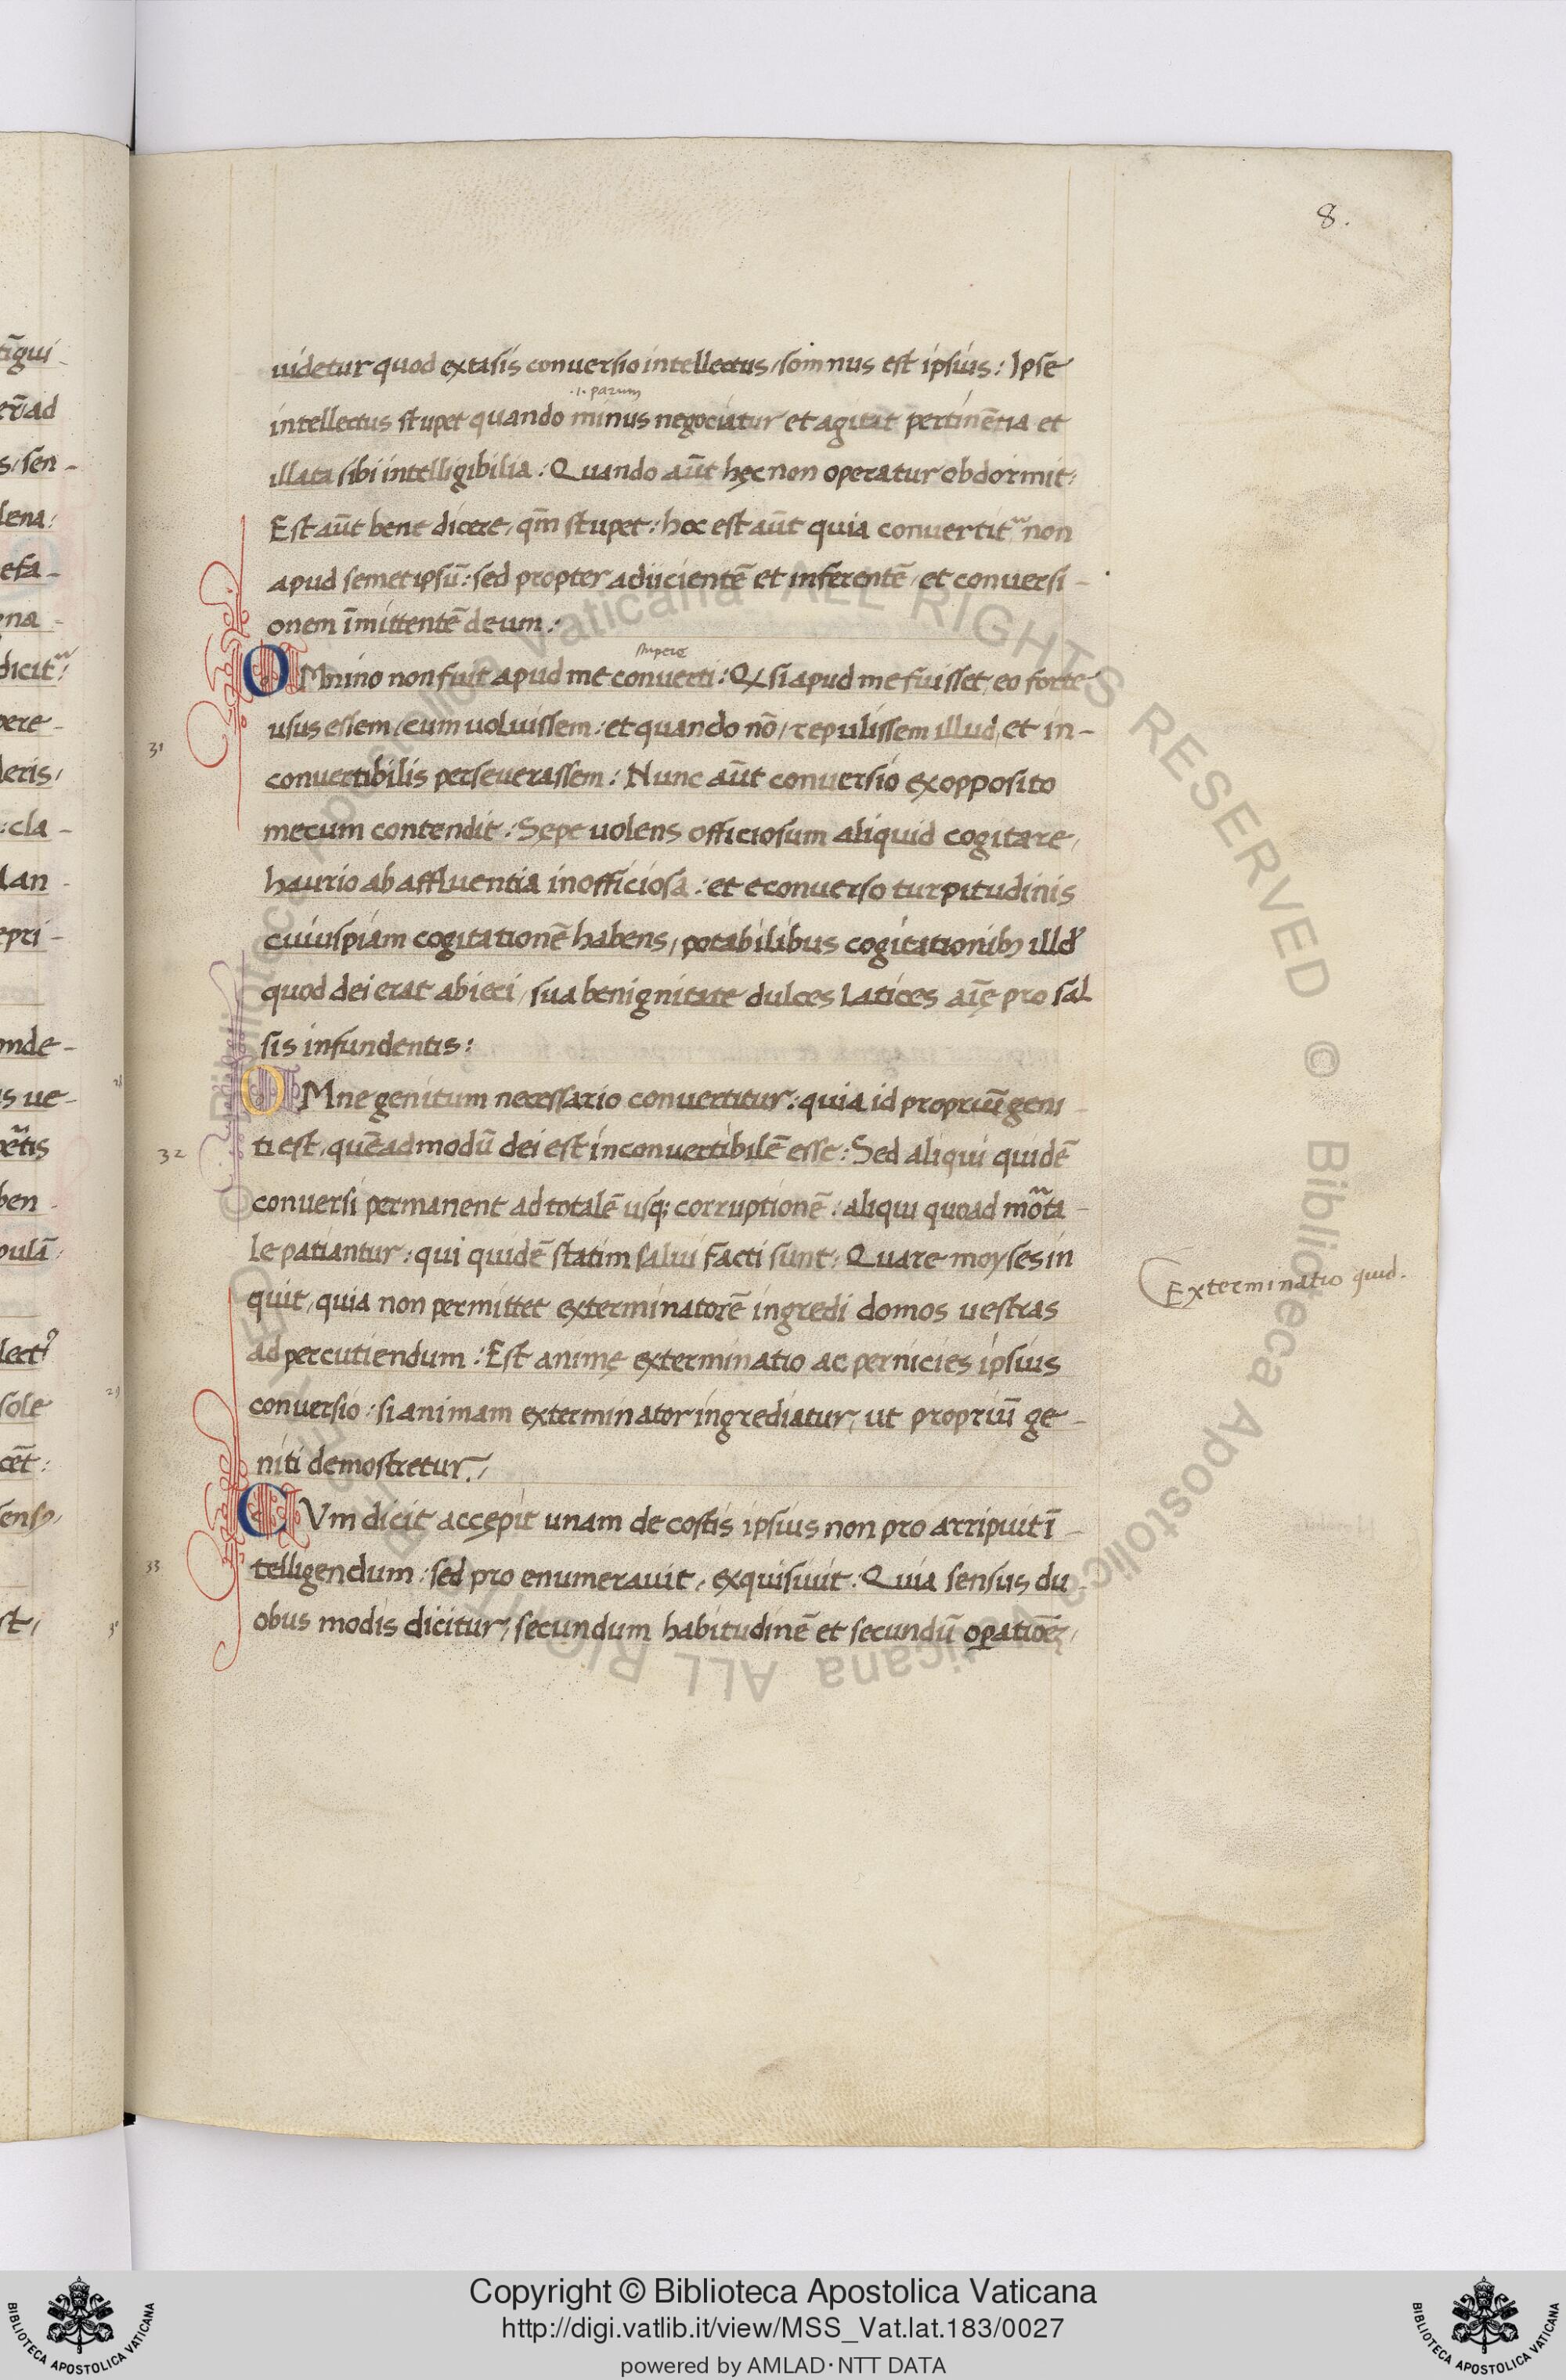 8.
uidetur quod extasis conuersio intellectus / somnus est ipsius: Ipse
.i. parum
intellectus stupet quando minus negociatur et agitat pertinētia et
illata sibi intelligibilia: Quando aūt hęc non operatur obdormit:
Est aūt bene dicere, qm̄ stupet: hoc est aūt quia conuertit᷑ non
apud semetipsū: sed propter adiicientē et inferentē, et conuersi-
onem īmittentē deum:
OMnino non fuit apud me conuerti: Q si apud me fuisset, eo forte
usus essem, cum uoluissem: et quando nō, repulissem illud, et in-
31
conuertibilis perseuerassem: Nunc aūt conuersio exopposito
mecum contendit: Sępe uolens officiosum aliquid cogitare,
haurio ab affluentia inofficiosa: et econuerso turpitudinis
cuiuspiam cogitationē habens, potabilibus cogitationib; illd
quod dei erat abieci, sua benignitate dulces latices aīę pro sal
sis infundentis:
OMne genitum necessario conuertitur: quia id propriū geni-
32
ti est, quēadmodū dei est inconuertibilē esse: Sed aliqui quidē
conuersi permanent ad totalē usq; corruptionē: aliqui quoad mōta-
le patiantur: qui quidē statim salui facti sunt: Quare moyses in
quit, quia non permittet exterminatorē ingredi domos uestras
Exterminatio quid.
ad percutiendum: Est animę exterminatio ac pernicies ipsius
conuersio: si animam exterminator ingrediatur, ut propriū ge-
niti demostretur:
CVm dicit accepit unam de costis ipsius non pro arripuit ī-
33
telligendum: sed pro enumerauit, exquisiuit: Quia sensus du-
obus modis dicitur, secundum habitudinē et secundū opatiōeʒ,
© Biblioteca Apostolica Vaticana ALL RIGHTS RESERVED
Copyright © Biblioteca Apostolica Vaticana
http://digi.vatlib.it/view/MSS_Vat.lat.183/0027
powered by AMLAD·NTT DATA
BIBLIOTECA APOSTOLICA VATICANA
BIBLIOTECA APOSTOLICA VATICANA